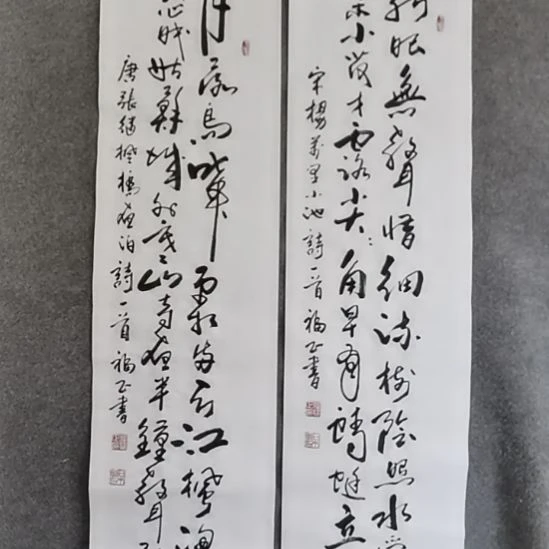 泉眼無聲惜細流樹陰照水
柔小荷才露尖尖角早有蜻蜓立
宋楊萬里小池詩一首福正書
月落烏啼霜滿天江楓漁
愁眠姑蘇城外寒山寺夜半鐘聲到
唐張繼楓橋夜泊詩一首福正書